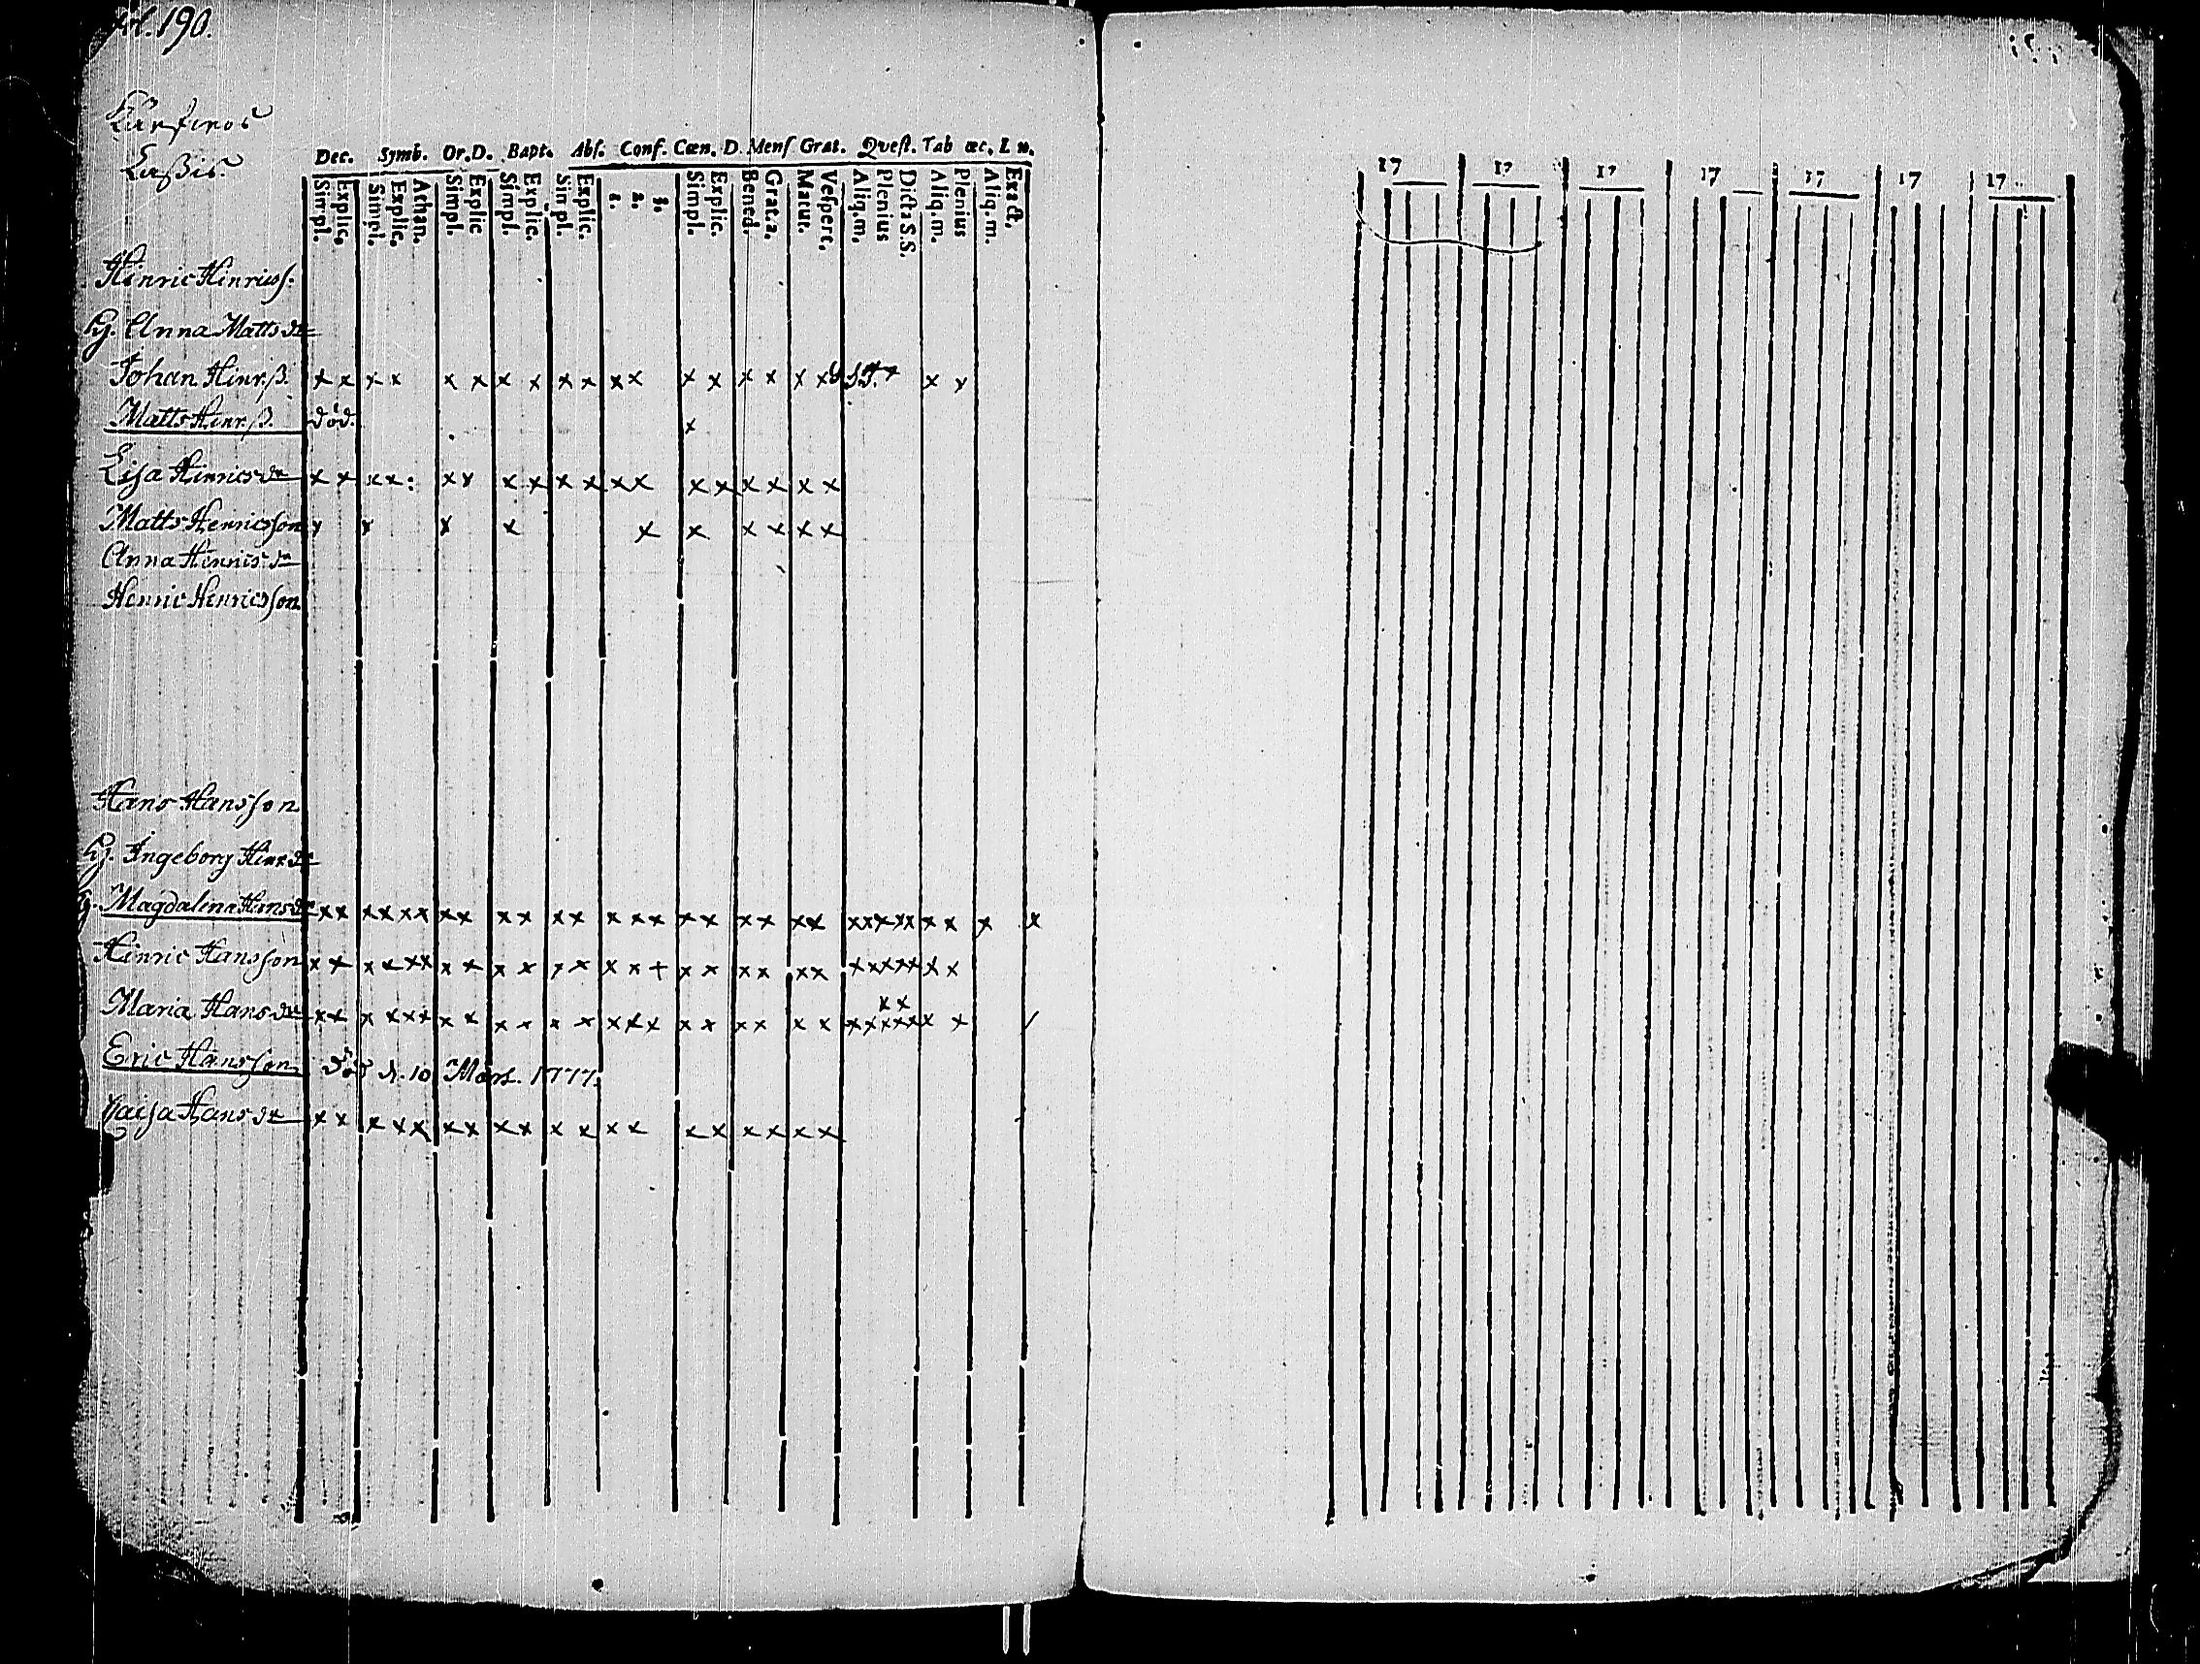 Fol. 190.
Laßis.
Dec. Symb. Or.D. Bapt. Abs. Conf. Cœn. D. Mens Grat. Qvest. Tab œc. L n.
Simpl. Explic. Simpl. Explic. Athan. Simpl. Explic Simpl. Explic. Simpl. Explic. 1. 2. 3. Simpl. Explic. Bened. Grat.a. Matut. Vespert. Aliq.m. Plenius Dicta S.S. Aliq.m. Plenius Aliq.m. Exact.
Hinric Hinricss.
H. Anna Matts dr
Johan Hinr.ß. x x x x x x x x x x x x x x x x x x x x
Matts Hinr.ß. död. x
Lisa Hinrics dr x x x x : x x x x x x x x x x x x x x
Matts Henricsson x x x x x x x x x x
Anna Hinrics dr
Henric Henricsson
Hans Hansson
H. Ingeborg Hinr dr
Magdalena Hans dr x x x x x x x x x x x x x x x x x x x x x x x x x x x x x x
Hinric Hansson x x x x x x x x x x x x x x x x x x x x x x x x x x x x
x x
Maria Hans dr x x x x x x x x x x x x x x x x x x x x x x x x x x x x /
Eric Hansson död d. 10 Mars. 1777.
Caisa Hans dr x x x x x x x x x x x x x x x x x x
17 17 17 17 17 17 17